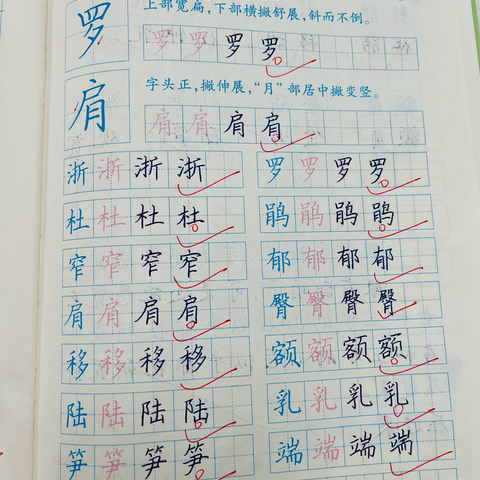 罗 上部宽扁，下部横撇舒展，斜而不倒。
罗 罗 罗 罗
肩 字头正，撇伸展，“月”部居中撇变竖。
肩 肩 肩 肩
浙 浙 浙 浙 罗 罗 罗 罗
杜 杜 杜 杜 鹃 鹃 鹃 鹃
窄 窄 窄 窄 郁 郁 郁 郁
肩 肩 肩 肩 臀 臀 臀 臀
移 移 移 移 额 额 额 额
陆 陆 陆 陆 乳 乳 乳 乳
笋 笋 笋 笋 端 端 端 端